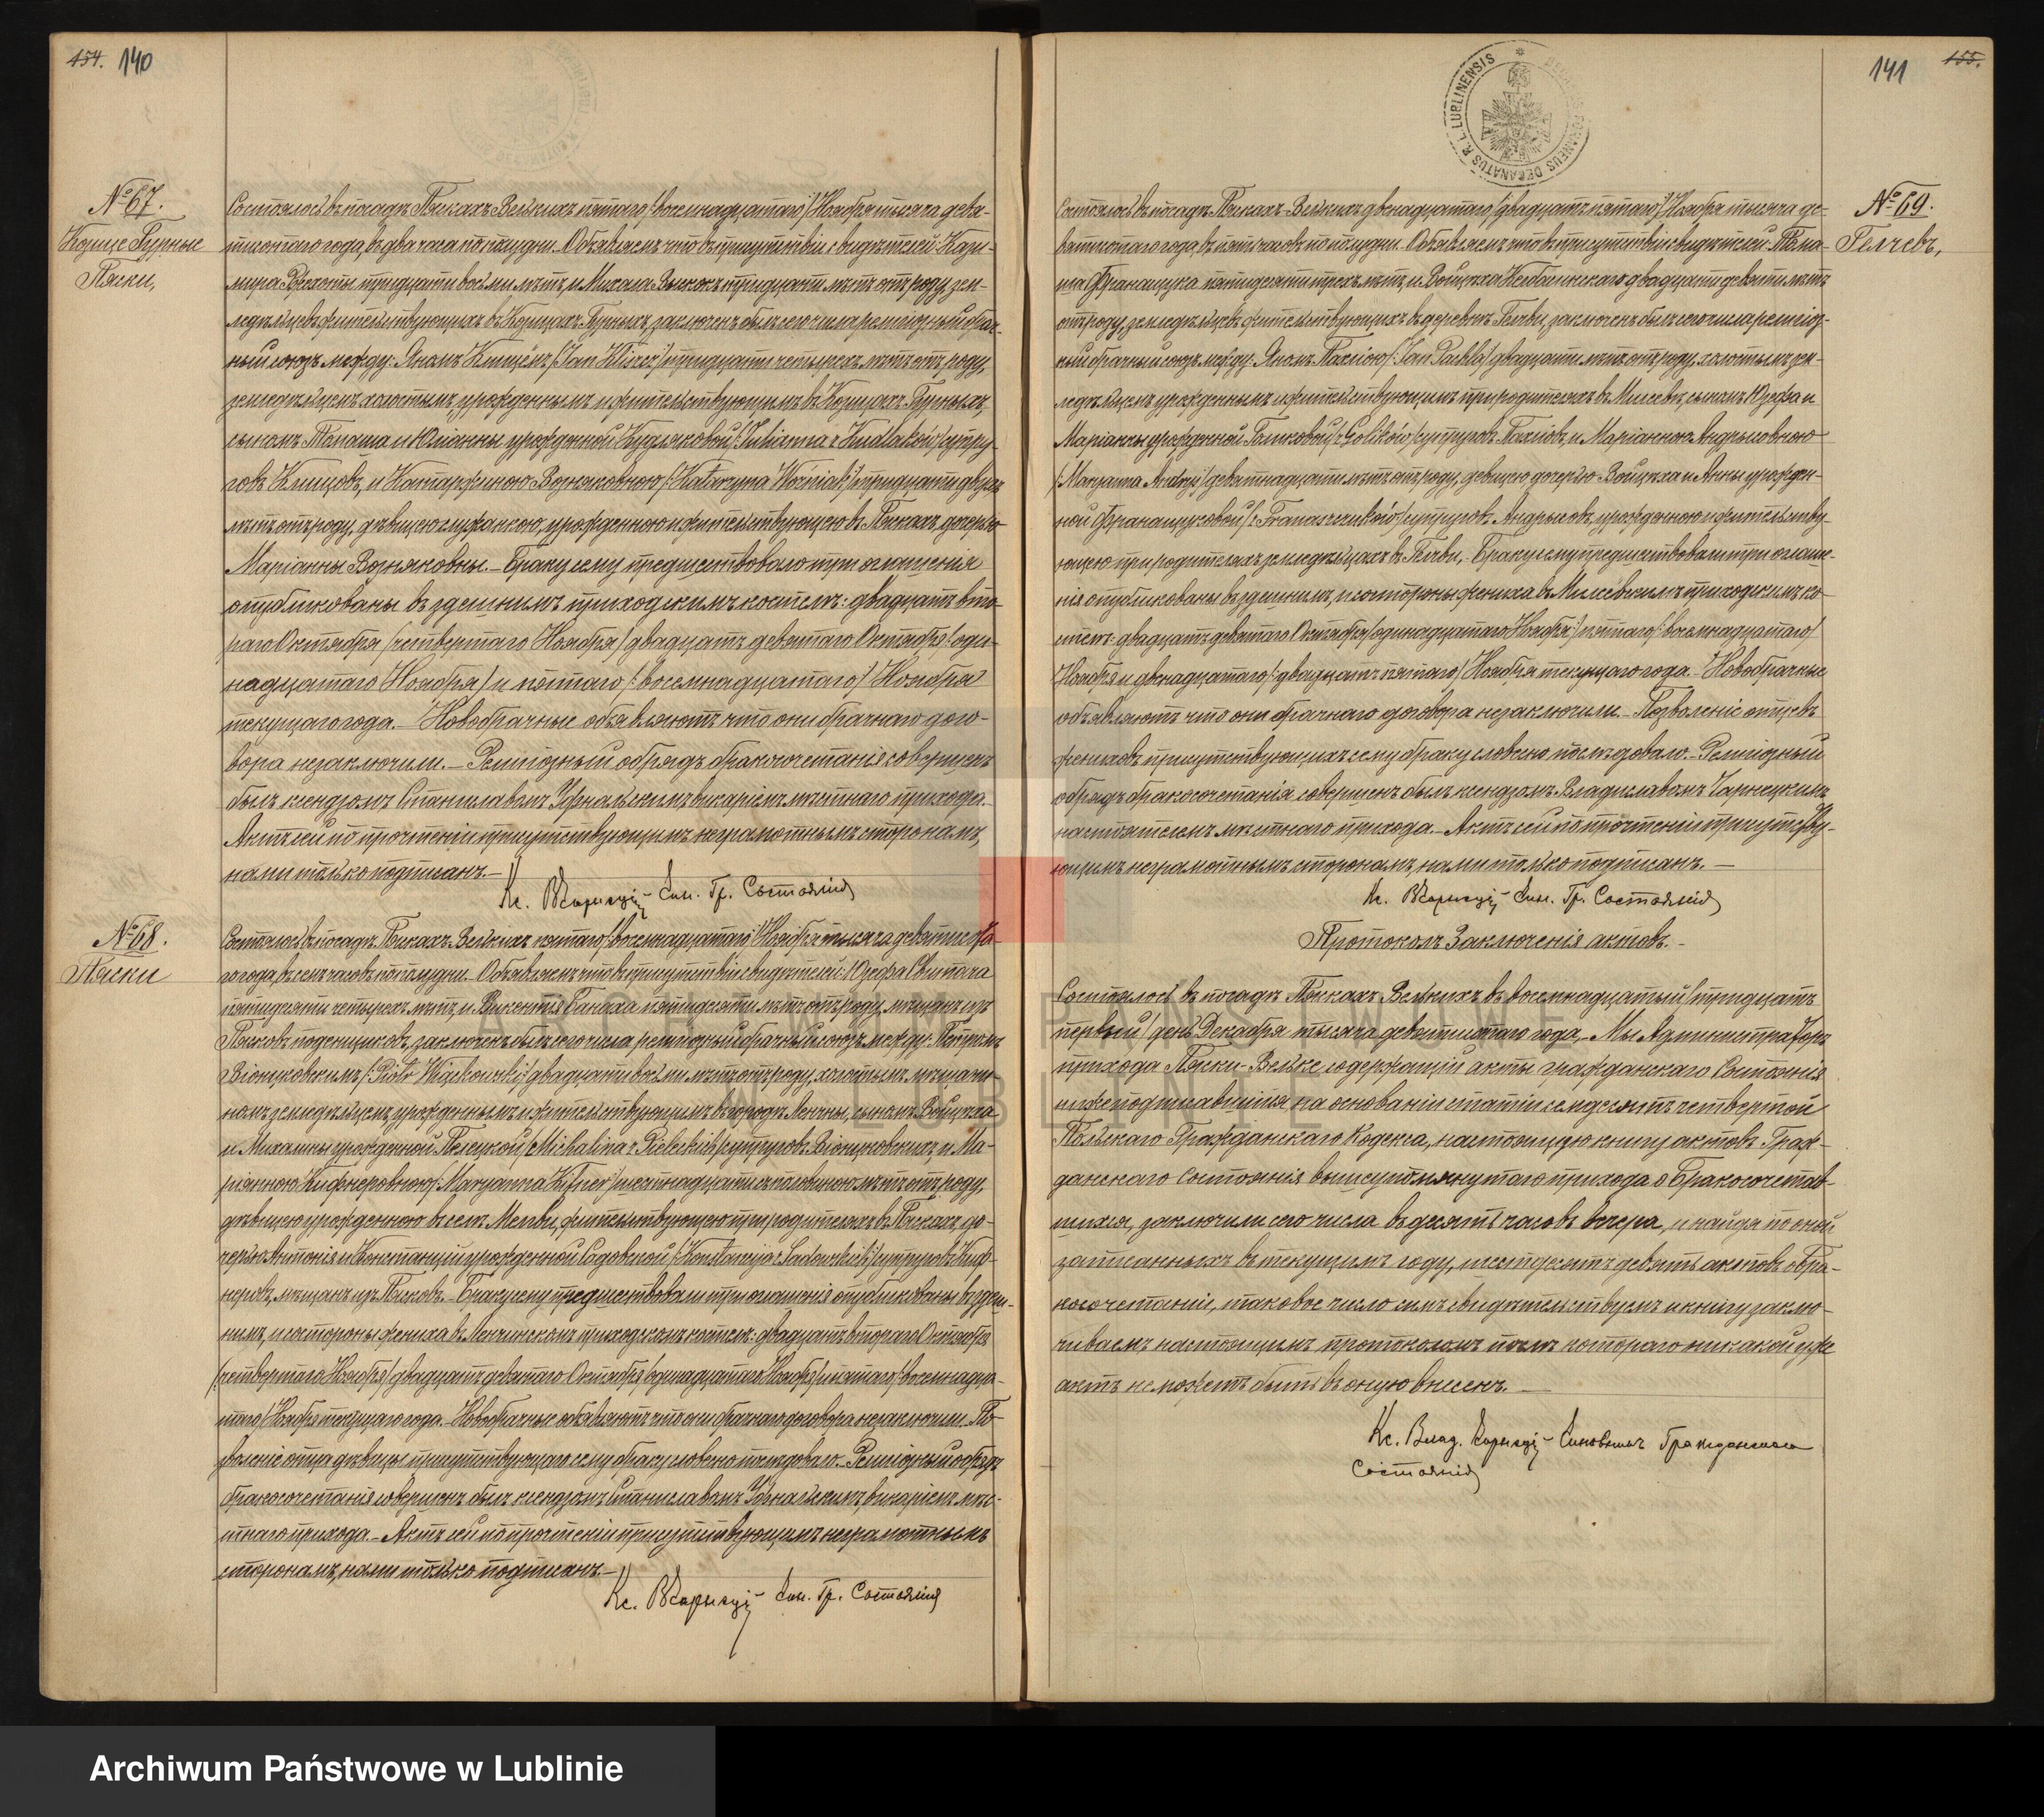 154. 140
№ 67.
Козице Гурные
Пяски,
Состоялось въ посадѣ Пяскахъ Великихъ пятаго /:восемнадцатаго/ Ноября тысяча девя-
тисотаго года, въ два часа по полудни. Объявляемъ что въ присутствіи свидѣтелей Кази-
мира тридцати восьми лѣтъ, и Михала тридцати лѣтъ отъ роду, зем-
ледѣльцевъ жительствующихъ въ Козицахъ Гурныхъ, заключенъ былъ сего числа религіозный брач-
ный союзъ между: Яномъ /:Jan / тридцати четырехъ лѣтъ отъ роду,
земледѣльцемъ холостымъ, урожденнымъ и жительствующимъ въ Козицахъ Гурныхъ,
сыномъ Томаша и Юліанны урожденной Кудлаковой /:Julianna z Kudłaków/ супру-
говъ и Катаржиною Возняковною /:Katarzyna Woźniak:/ тридцати двухъ
лѣтъ отъ роду, дѣвицею служанкою, урожденною и жительствующею въ Пяскахъ, дочерью
Маріанны Возняковны. – Браку сему предшествовало три оглашенія
опубликованы въ здешнимъ приходскимъ костелѣ: двадцать вто-
раго Октября /четвертаго Ноября/ двадцать девятаго Октября /:оди-
надцатаго Ноября/ и пятаго /:восемнадцатаго/ Ноября
текущаго года. – Новобрачные объявляютъ что они брачнаго дого-
вора незаключили. – Религіозный обрядъ бракосочетанія совершенъ
былъ ксендзомъ Станиславомъ викаріемъ мѣстнаго прихода. –
Актъ сей по прочтеніи присутствующимъ неграмотнымъ сторонамъ,
нами только подписанъ. –
Кс. Сод. Гр. Состоянія
№ 68.
Пяски
Состоялось въ посадѣ Пяскахъ Великихъ пятаго /:восемнадцатаго/ Ноября тысяча девятисота-
го года, въ семь часовъ по полудни. Объявляемъ что въ присутствіи свидѣтелей: Юзефа
пятидесяти четырехъ лѣтъ, и Викентія пятидесяти лѣтъ отъ роду, мѣщанъ изъ
Пясковъ поденщиковъ, заключенъ былъ сего числа религіозный брачный союзъ между: Петромъ
/:Piotr / двадцати восьми лѣтъ отъ роду, холостымъ, мѣщани-
номъ земледѣльцемъ, урожденнымъ и жительствующимъ въ городѣ Ленчны, сыномъ Войцѣха
и Михалины урожденной /Michalina z / супруговъ и Ма-
ріанною Кифнеровною /:Maryanna Kifner/ шестнадцати съ половиною лѣтъ отъ роду,
дѣвицею урожденною въ селѣ Мелгви, жительствующею при родителяхъ въ Пяскахъ, до-
черью Антонія и Констанціи урожденной Садовской /:Konstancyja z Sadowskich/ супруговъ Киф-
неровъ, мѣщанъ изъ Пясковъ. – Браку сему предшествовали три оглашенія опубликованы въ здеш-
нимъ, и со стороны жениха въ Ленчинскомъ приходскомъ костелѣ: двадцать втораго Октября
/четвертаго Ноября/ двадцать девятаго Октября /одинадцатаго Ноября/ и пятаго /:восемнадца-
таго/ Ноября текущаго года. – Новобрачные объявляютъ что они брачнаго договора незаключили. – По-
зволеніе отца дѣвицы присутствующаго сему браку словесно послѣдовало. – Религіозный обрядъ
бракосочетанія совершенъ былъ ксендзомъ Станиславомъ викаріемъ мѣс-
тнаго прихода. – Актъ сей по прочтеніи присутствующимъ неграмотнымъ
сторонамъ, нами только подписанъ. –
Кс. Сод. Гр. Состоянія
141 155.
DECANATUS R. L. LUBLINENSIS
№ 69.
Гелчевъ,
Состоялось въ посадѣ Пяскахъ-Великихъ двенадцатаго /двадцать пятаго/ Ноября тысяча де-
вятисотаго года, въ пять часовъ по полудни. Объявляемъ что въ присутствіи свидѣтелей: Тома-
ша Франащука пятидесяти трехъ лѣтъ, и Войцѣха двадцати девяти лѣтъ
отъ роду, земледѣльцевъ жительствующихъ въ деревнѣ заключенъ былъ сего числа религіоз-
ный брачный союзъ между: Яномъ Пахлою /:Jan Pachla/ двадцати лѣтъ отъ роду, холостымъ зем-
ледѣльцемъ урожденнымъ и жительствующимъ при родителяхъ въ сыномъ Юзефа и
Маріанны урожденной Голиковой /z Golików/ супруговъ и Маріанною
/Maryanna / девятнадцати лѣтъ отъ роду, девицею дочерью Войцѣха и Анны урожден-
ной Франащуковой /z Franaszczuków/ супруговъ урожденною и жительству-
ющею при родителяхъ земледѣльцахъ въ – Браку сему предшествовали три оглаше-
нія опубликованы въ здешнимъ, и со стороны жениха въ приходскимъ ко-
стелѣ: двадцать девятаго Октября /одинадцатаго Ноября/ пятаго /:восемнадцатаго/
Ноября и двенадцатаго /:двадцать пятаго/ Ноября текущаго года. – Новобрачные
объявляютъ что они брачнаго договора незаключили. – Позволеніе отцевъ
жениховъ присутствующихъ сему браку словесно послѣдовало. – Религіозный
обрядъ бракосочетанія совершенъ былъ ксендзомъ Владиславомъ
настоятелемъ мѣстнаго прихода. – Актъ сей по прочтеніи присутству-
ющимъ неграмотнымъ сторонамъ, нами только подписанъ. –
Кс. Сод. Гр. Состоянія
Протоколъ Заключенія актовъ. –
Состоялось въ посадѣ Пяскахъ Великихъ въ восемнадцатый /тридцать
первый/ день Декабря тысяча девятисотаго года, – Мы Администраторъ
прихода Пяски-Великіе содержащій акты гражданскаго Состоянія
нижеподписавшійся на основаніи статіи семдесятъ четвертой
Польскаго Гражданскаго Кодекса, настоящую книгу актовъ Граж-
данскаго Состоянія вышеупомянутаго прихода о Бракосочетав-
шихся, заключили сего числа въ десять часовъ вечера, и найдя по оной
записанныхъ въ текущимъ году, шестдесятъ девять актовъ о Бра-
косочетаніи, таковое число симъ свидѣтельствуемъ и книгу заклю-
чиваемъ настоящимъ протоколомъ послѣ котораго никакой уже
актъ не можетъ быть въ оную внесенъ. –
Кс. Влад. Гражданскаго
Состоянія
ARCHIWUM PAŃSTWOWE
W LUBLINIE
Archiwum Państwowe w Lublinie